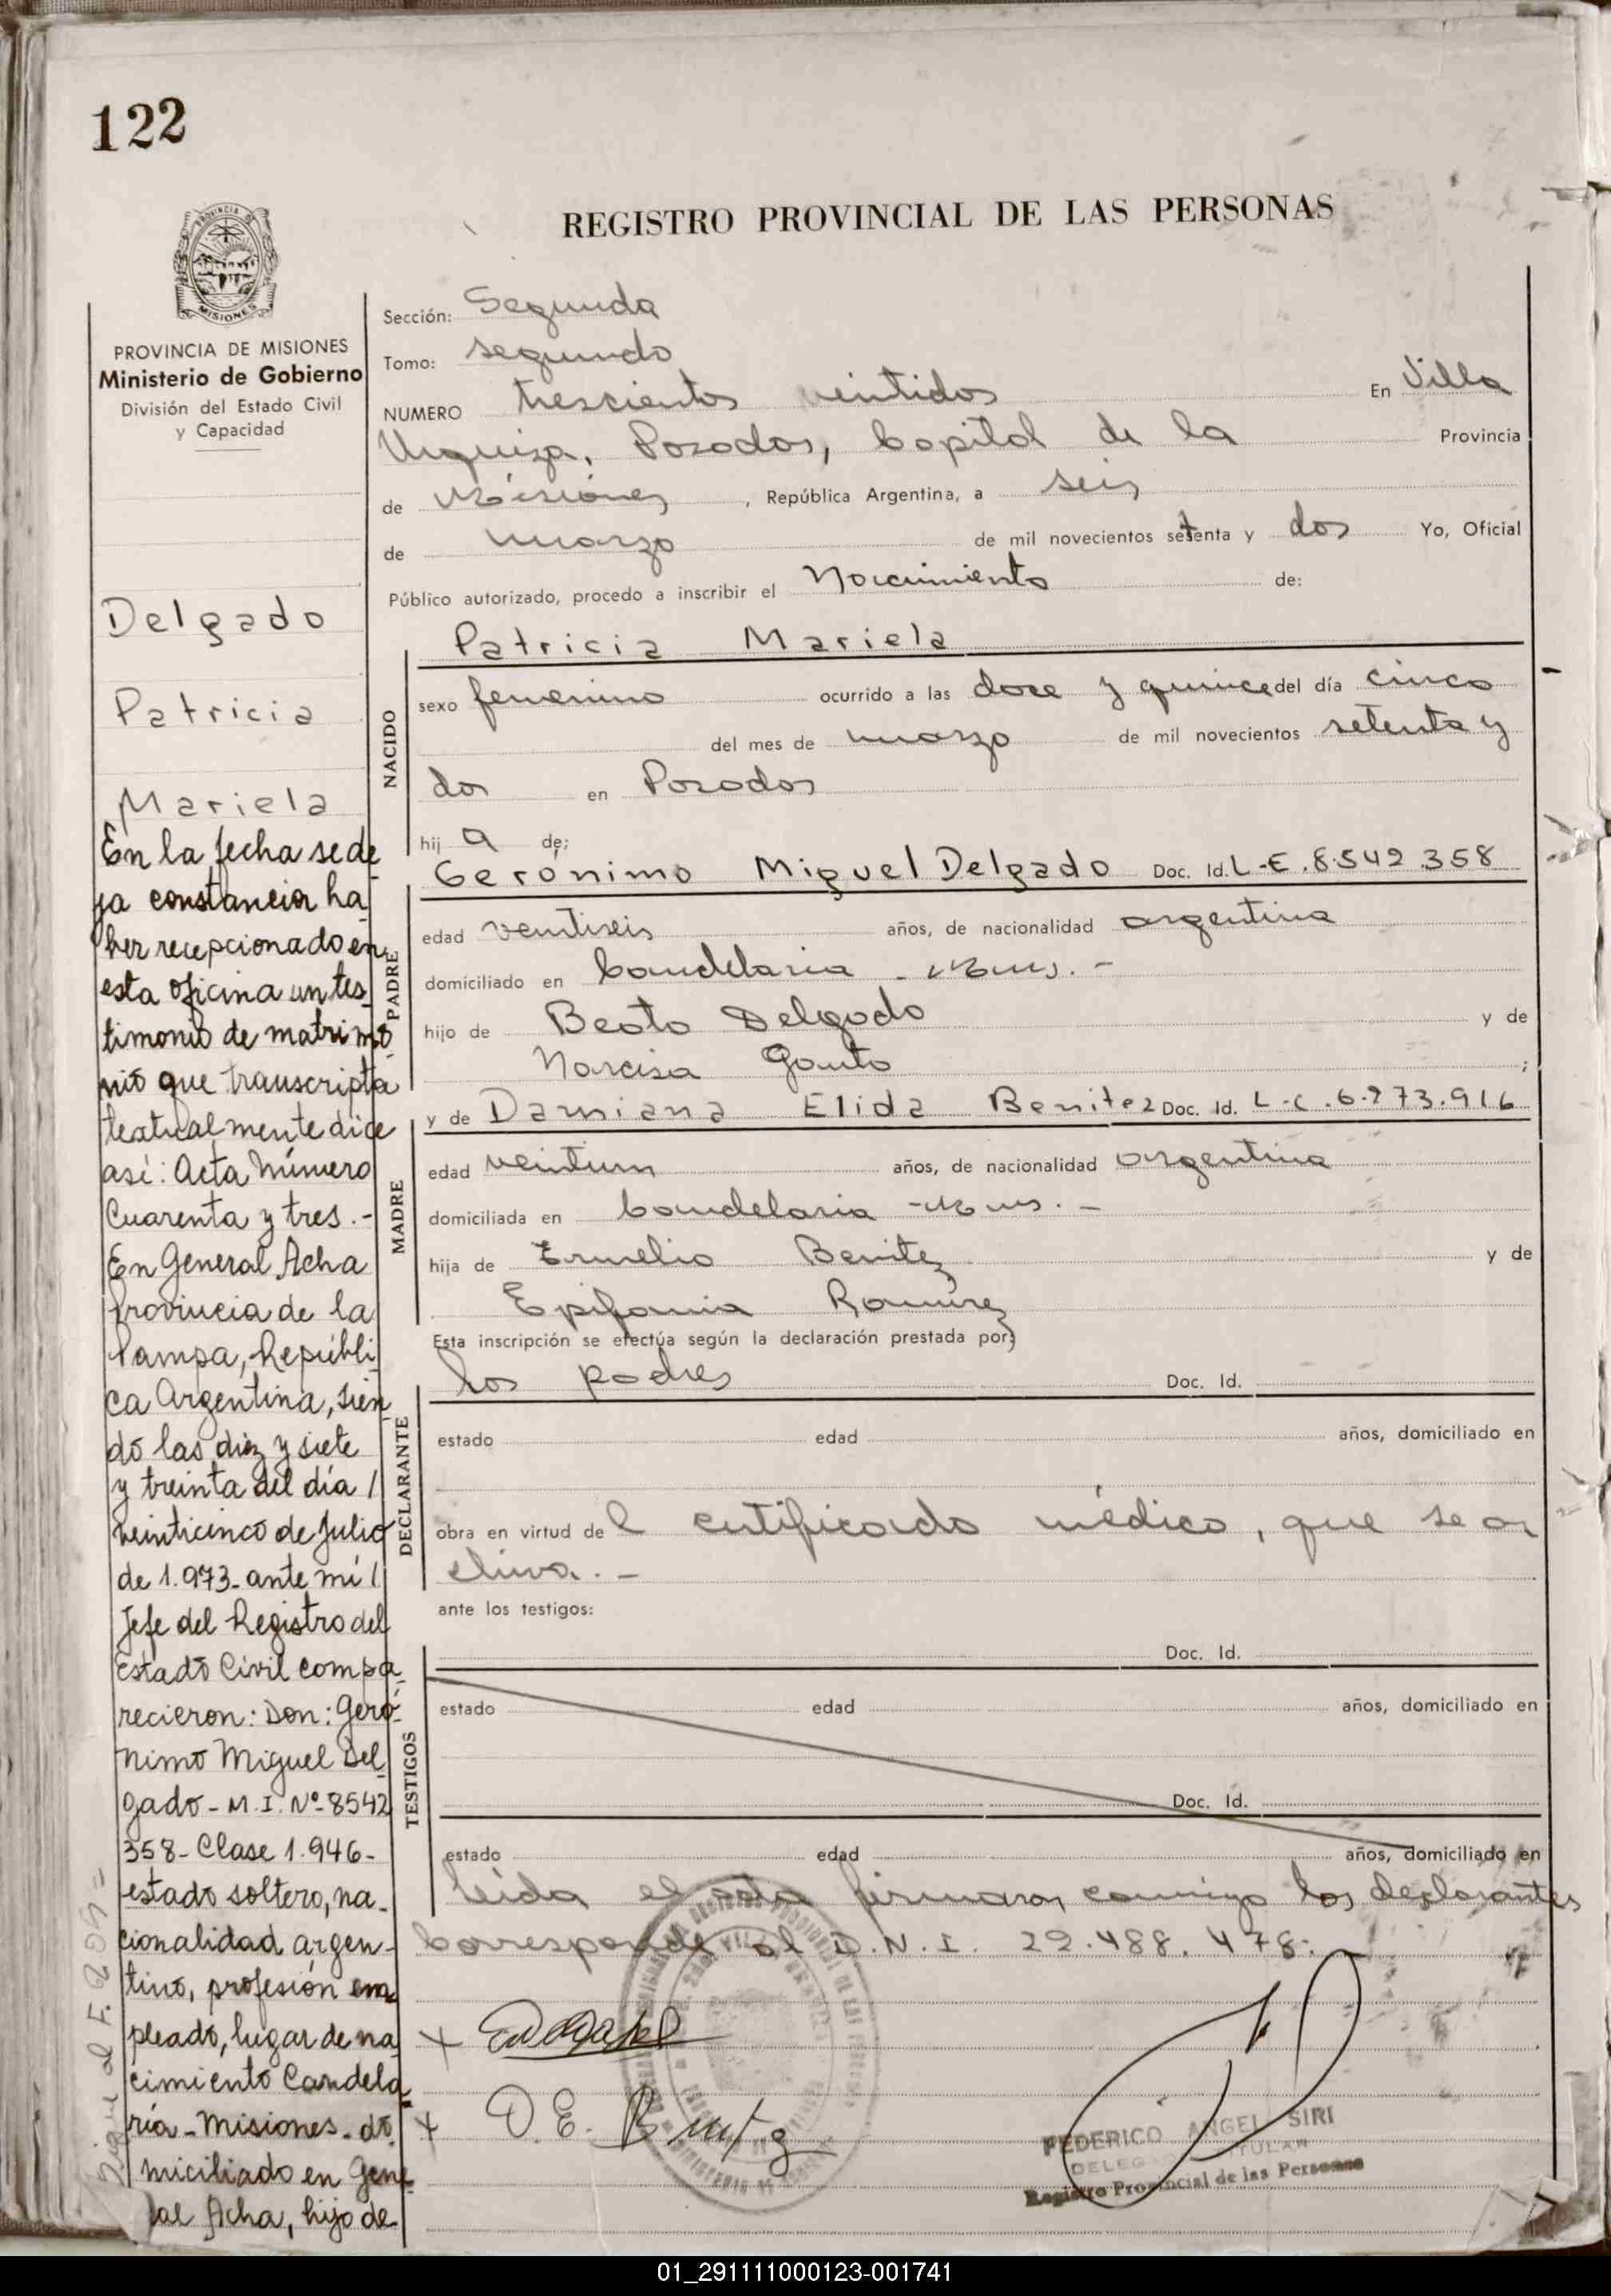 122
REGISTRO PROVINCIAL DE LAS PERSONAS
PROVINCIA DE
MISIONES
PROVINCIA DE MISIONES
Ministerio de Gobierno
División del Estado Civil
y Capacidad
Delgado
Patricia
Mariela
En la fecha se de
ja constancia ha
ber recepcionado en
esta oficina un tes
timonio de matrimo
nio que transcripta
textualmente dice
así: Acta Número
Cuarenta y tres.-
En General Acha
Provincia de la
Pampa, Repúbli
ca Argentina, sien
do las diez y siete
y treinta del día /
veinticinco de Julio
de 1.973- ante mí /
Jefe del Registro del
Estado Civil compa
recieron: Don: Geró-
nimo Miguel Del
gado - M.I. Nº-8542
358- Clase 1.946-
estado soltero, na-
cionalidad argen-
tino, profesión em
pleado, lugar de na
cimiento Candela
ria - Misiones - do
miciliado en Gene
ral Acha, hijo de
Sigue al F. 209 =
Sección: Segunda
Tomo: segundo
NUMERO trescientos veintidos En Villa
Urquiza, Posadas, Capital de la Provincia
de Misiones, República Argentina, a seis
de marzo de mil novecientos setenta y dos Yo, Oficial
Público autorizado, procedo a inscribir el Nacimiento de:
NACIDO
Patricia Mariela
sexo femenino ocurrido a las doce y quince del día cinco
del mes de marzo de mil novecientos setenta y
dos en Posadas
hij a de;
PADRE
Gerónimo Miguel Delgado Doc. Id. L-E.8.542.358
edad ventiseis años, de nacionalidad argentina
domiciliado en Candelaria - Mnes. -
hijo de Beato Delgado y de
Narcisa Gauto ;
MADRE
y de Damiana Elida Benitez Doc. Id. L-C.6.273.916
edad veintiun años, de nacionalidad argentina
domiciliada en Candelaria - Mnes. -
hija de Ermelio Benitez y de
Epifania Ramirez
Esta inscripción se efectúa según la declaración prestada por;
DECLARANTE
los padres Doc. Id.
estado edad años, domiciliado en
obra en virtud de l certificado médico, que se ar
chiva. -
ante los testigos:
TESTIGOS
Doc. Id.
estado edad años, domiciliado en
Doc. Id.
estado edad años, domiciliado en
leida el acta firmaron conmigo los declarantes
Corresponde al D.N.I. 22.488.478.
x
x D. E. Benitez
FEDERICO ANGEL SIRI
DELEGADO TITULAR
Registro Provincial de las Personas
01_291111000123-001741